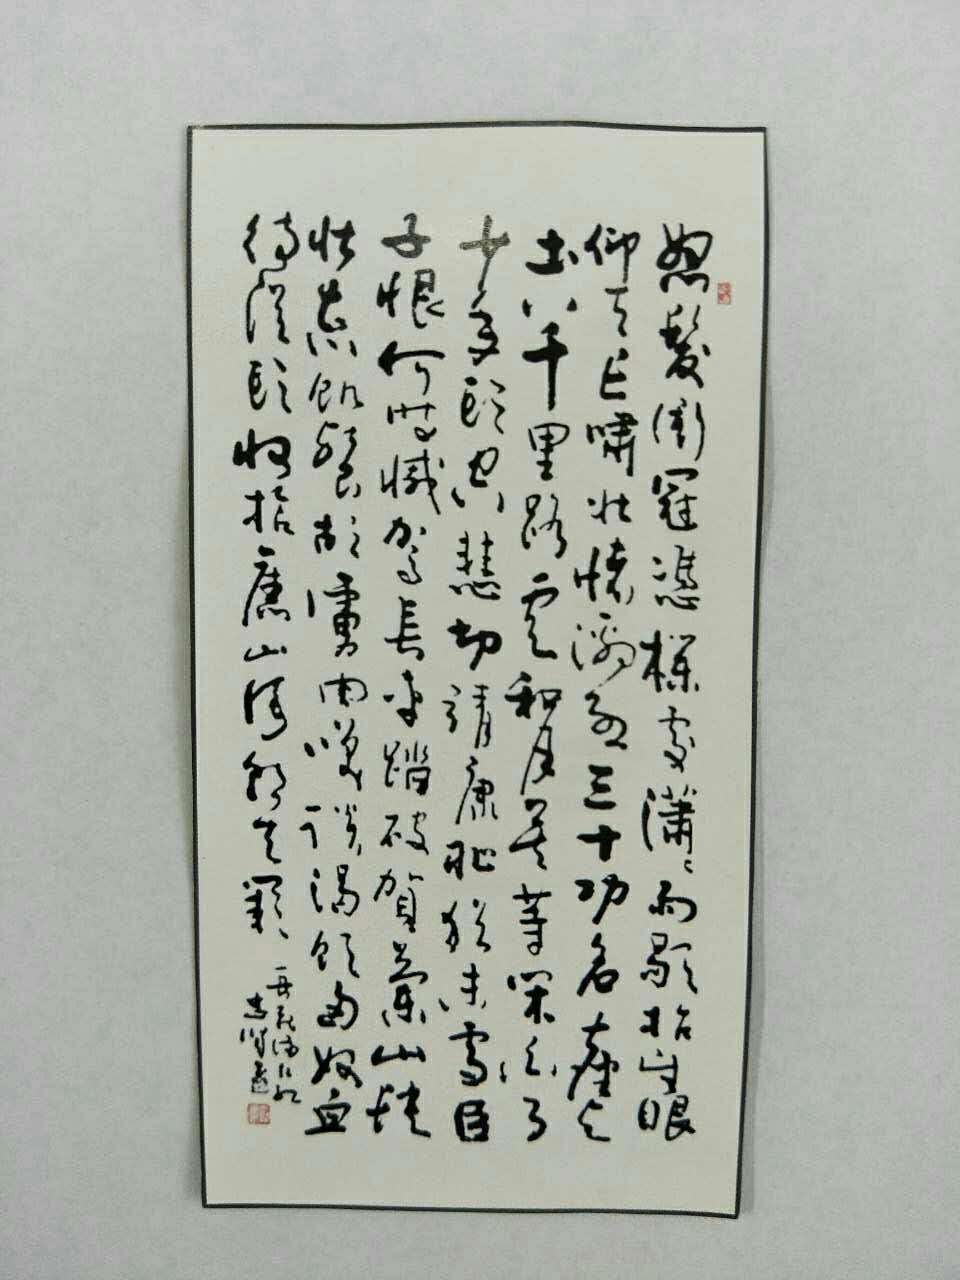 怒髮衝冠憑欄處瀟瀟雨歇抬望眼
仰天長嘯壯懷激烈三十功名塵與
土八千里路雲和月莫等閑白了
少年頭空悲切靖康恥猶未雪臣
子恨何時憾駕長車踏破賀蘭山缺
壯志飢餐胡虜肉笑談渴飲匈奴血
待從頭收拾舊山河朝天闕
岳飛滿江紅